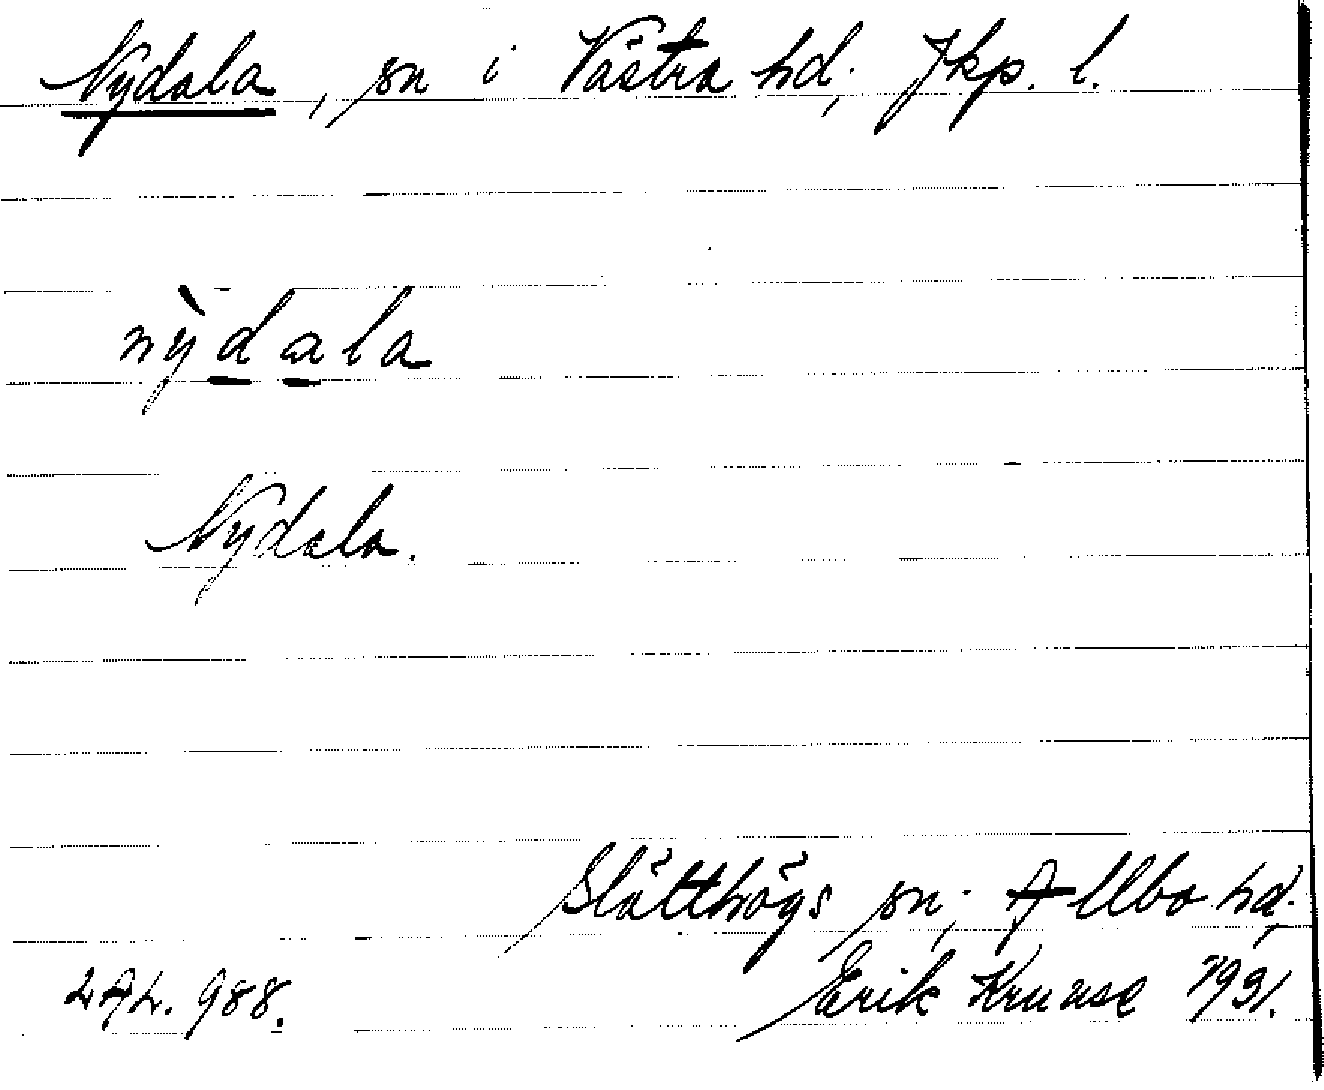 Nydala, sn i Västra hd, Jkp. l.
nỳdala
Nydala.
Slätthögs sn; Allbo hd,
LAL. 988. Erik Kruuse 1931.